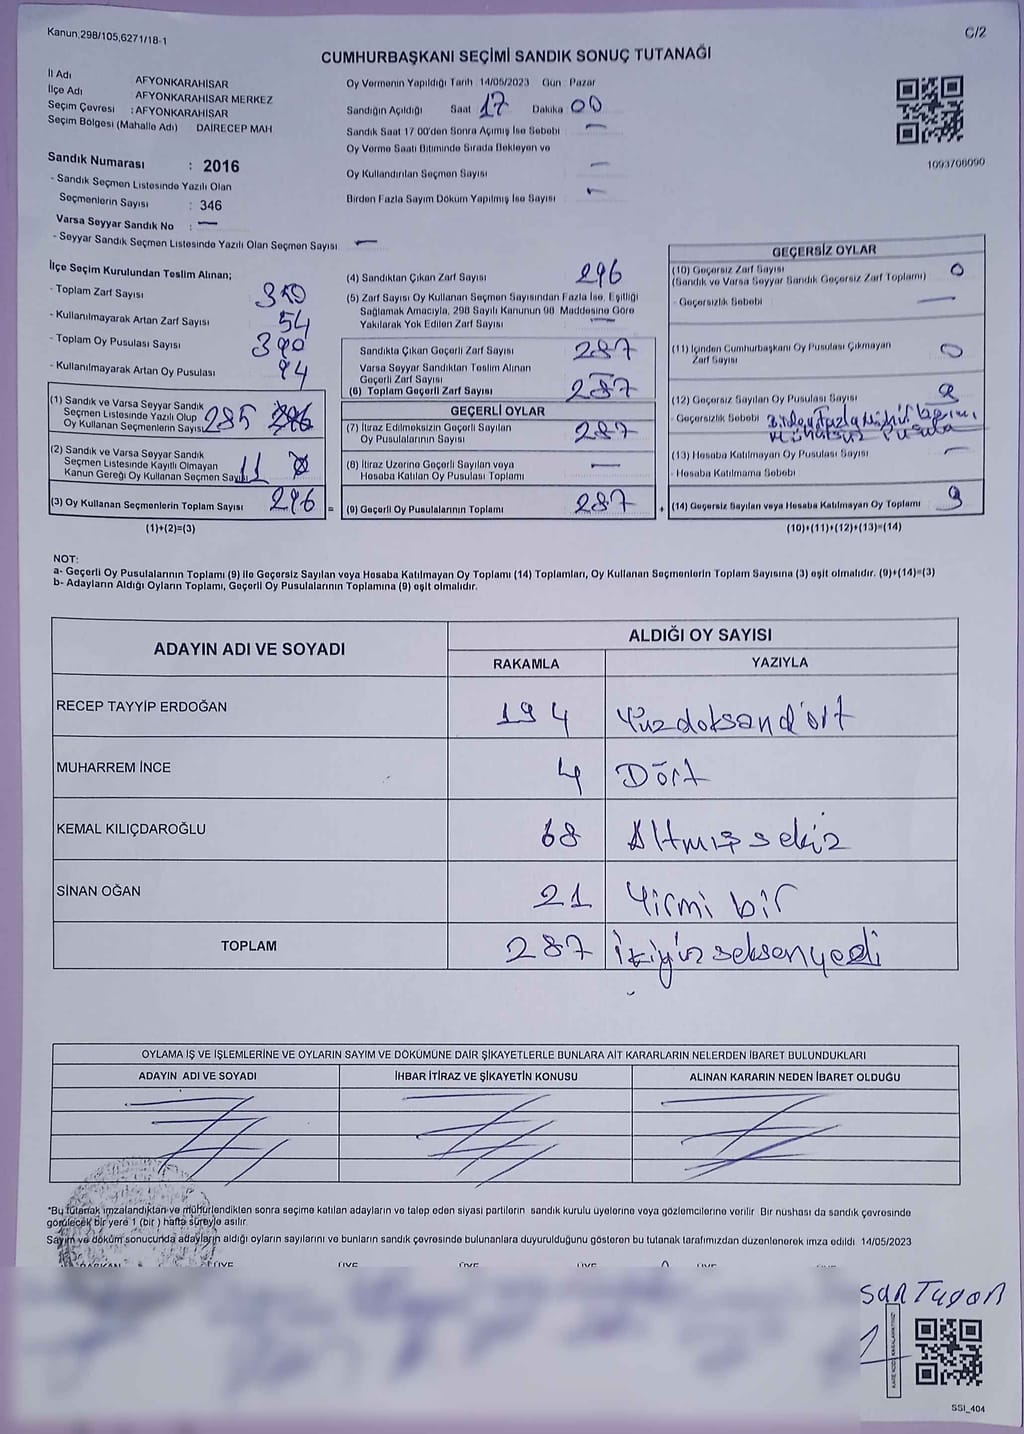 Kanun,298/105,6271/18-1
C/2
CUMHURBAŞKANI SEÇİMİ SANDIK SONUÇ TUTANAĞI
İl Adı AFYONKARAHİSAR
İlçe Adı : AFYONKARAHİSAR MERKEZ
Seçim Çevresi : AFYONKARAHİSAR
Seçim Bölgesi (Mahalle Adı) DAİRECEP MAH
Sandık Numarası : 2016
- Sandık Seçmen Listesinde Yazılı Olan
Seçmenlerin Sayısı : 346
Varsa Seyyar Sandık No : —
- Seyyar Sandık Seçmen Listesinde Yazılı Olan Seçmen Sayısı —
Oy Vermenin Yapıldığı Tarih 14/05/2023 Gün Pazar
Sandığın Açıldığı Saat 17 Dakika 00
Sandık Saat 17 00'den Sonra Açımış İse Sebebi —
Oy Verme Saati Bitiminde Sırada Bekleyen ve
Oy Kullandırılan Seçmen Sayısı —
Birden Fazla Sayım Döküm Yapılmış İse Sayısı —
1093706090
İlçe Seçim Kurulundan Teslim Alınan;
- Toplam Zarf Sayısı 350
- Kullanılmayarak Artan Zarf Sayısı 54
- Toplam Oy Pusulası Sayısı 390
- Kullanılmayarak Artan Oy Pusulası 94
(1) Sandık ve Varsa Seyyar Sandık
Seçmen Listesinde Yazılı Olup
Oy Kullanan Seçmenlerin Sayısı 285 296
(2) Sandık ve Varsa Seyyar Sandık
Seçmen Listesinde Kayıtlı Olmayan
Kanun Gereği Oy Kullanan Seçmen Sayısı 11
(3) Oy Kullanan Seçmenlerin Toplam Sayısı 296 =
(1)+(2)=(3)
(4) Sandıktan Çıkan Zarf Sayısı 296
(5) Zarf Sayısı Oy Kullanan Seçmen Sayısından Fazla İse, Eşitliği
Sağlamak Amacıyla, 298 Sayılı Kanunun 98 Maddesine Göre
Yakılarak Yok Edilen Zarf Sayısı —
Sandıkta Çıkan Geçerli Zarf Sayısı 287
Varsa Seyyar Sandıktan Teslim Alınan
Geçerli Zarf Sayısı —
(6) Toplam Geçerli Zarf Sayısı 287
GEÇERLİ OYLAR
(7) İtiraz Edilmeksizin Geçerli Sayılan
Oy Pusulalarının Sayısı 287
(8) İtiraz Üzerine Geçerli Sayılan veya
Hesaba Katılan Oy Pusulası Toplamı —
(9) Geçerli Oy Pusulalarının Toplamı 287 +
GEÇERSİZ OYLAR
(10) Geçersiz Zarf Sayısı
(Sandık ve Varsa Seyyar Sandık Geçersiz Zarf Toplamı) 0
- Geçersizlik Sebebi —
(11) İçinden Cumhurbaşkanı Oy Pusulası Çıkmayan
Zarf Sayısı 0
(12) Geçersiz Sayılan Oy Pusulası Sayısı 9
- Geçersizlik Sebebi Birden fazla mühür basımı
mühürsüz pusula
(13) Hesaba Katılmayan Oy Pusulası Sayısı —
- Hesaba Katılmama Sebebi
(14) Geçersiz Sayılan veya Hesaba Katılmayan Oy Toplamı 9
(10)+(11)+(12)+(13)=(14)
NOT:
a- Geçerli Oy Pusulalarının Toplamı (9) ile Geçersiz Sayılan veya Hesaba Katılmayan Oy Toplamı (14) Toplamları, Oy Kullanan Seçmenlerin Toplam Sayısına (3) eşit olmalıdır. (9)+(14)=(3)
b- Adayların Aldığı Oyların Toplamı, Geçerli Oy Pusulalarının Toplamına (9) eşit olmalıdır.
ADAYIN ADI VE SOYADI ALDIĞI OY SAYISI
RAKAMLA YAZIYLA
RECEP TAYYİP ERDOĞAN 194 Yüzdoksandört
MUHARREM İNCE 4 Dört
KEMAL KILIÇDAROĞLU 68 Altmışsekiz
SİNAN OĞAN 21 Yirmi bir
TOPLAM 287 İkiyüzseksenyedi
OYLAMA İŞ VE İŞLEMLERİNE VE OYLARIN SAYIM VE DÖKÜMÜNE DAİR ŞİKAYETLERLE BUNLARA AİT KARARLARIN NELERDEN İBARET BULUNDUKLARI
ADAYIN ADI VE SOYADI İHBAR İTİRAZ VE ŞİKAYETİN KONUSU ALINAN KARARIN NEDEN İBARET OLDUĞU
*Bu tutanak imzalandıktan ve mühürlendikten sonra seçime katılan adayların ve talep eden siyasi partilerin sandık kurulu üyelerine veya gözlemcilerine verilir Bir nüshası da sandık çevresinde
görülecek bir yere 1 (bir ) hafta süreyle asılır.
Sayım ve döküm sonucunda adayların aldığı oyların sayılarını ve bunların sandık çevresinde bulunanlara duyurulduğunu gösteren bu tutanak tarafımızdan düzenlenerek imza edildi. 14/05/2023
BAŞKAN ÜYE ÜYE ÜYE ÜYE ÜYE
KARE KODU KARALAMAYINIZ!
SSI_404